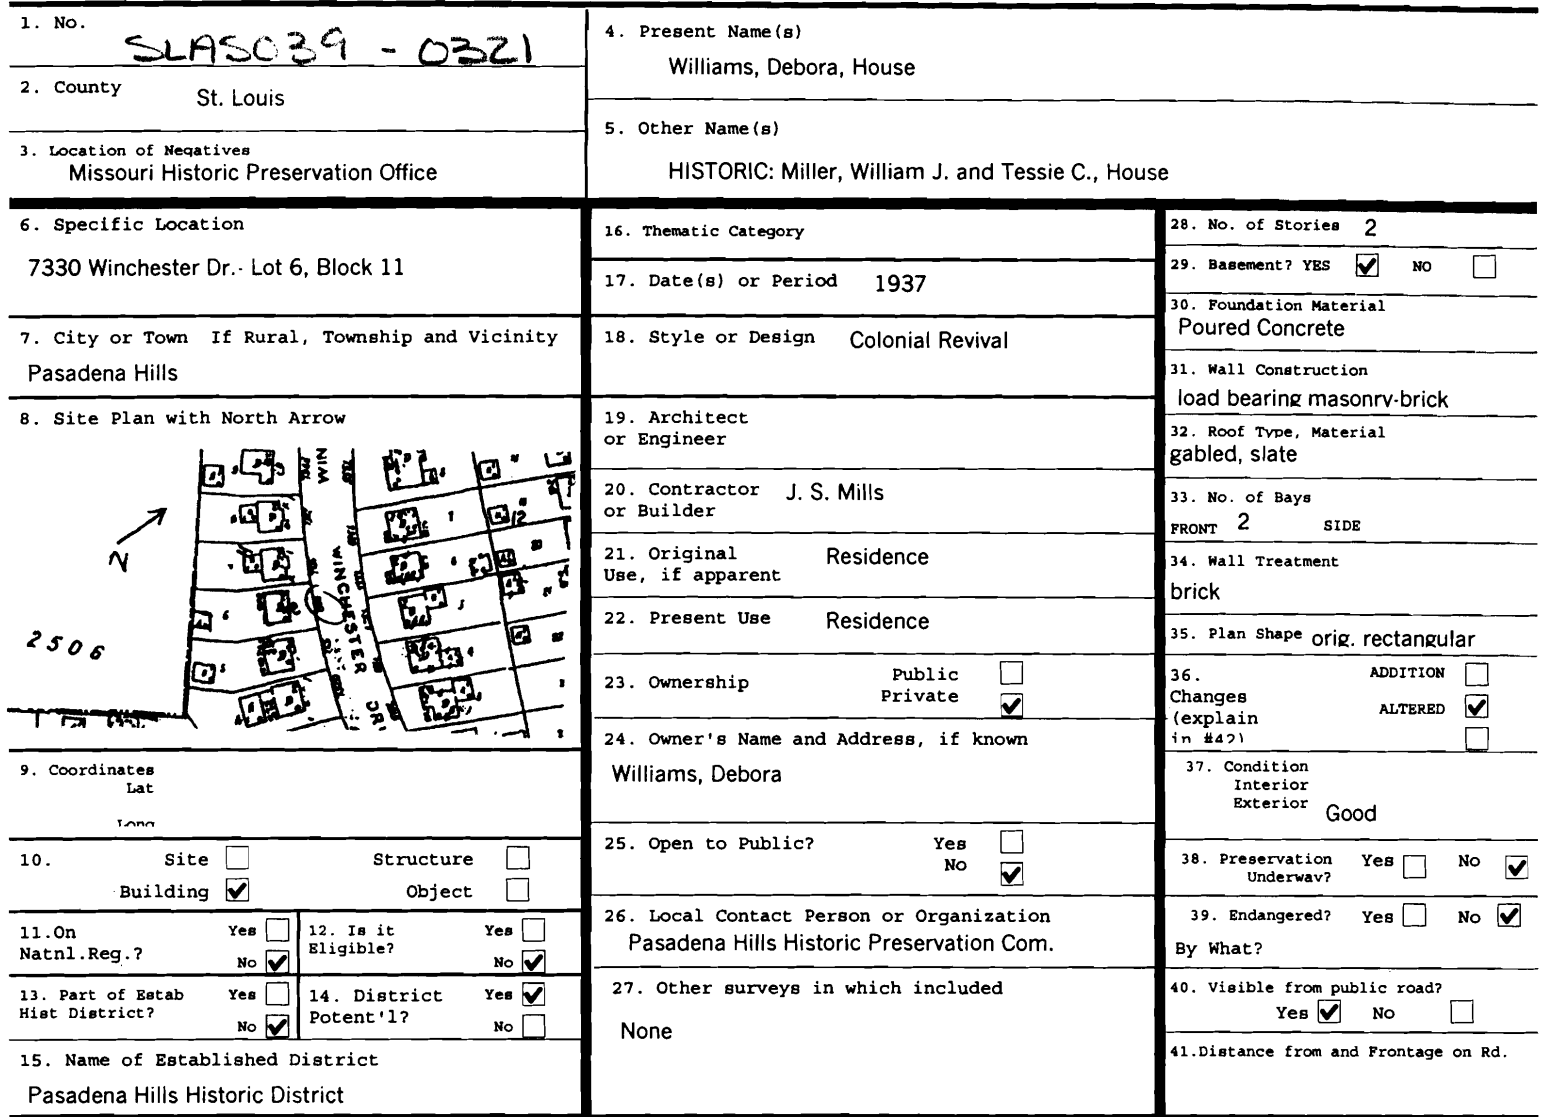 1. No.
SLAS039 - 0321
2. County
St. Louis
3. Location of Negatives
Missouri Historic Preservation Office
4. Present Name(s)
Williams, Debora, House
5. Other Name(s)
HISTORIC: Miller, William J. and Tessie C., House
6. Specific Location
7330 Winchester Dr.- Lot 6, Block 11
7. City or Town If Rural, Township and Vicinity
Pasadena Hills
8. Site Plan with North Arrow
N
WINCHESTER
DRI
2506
9. Coordinates
Lat
Long
10. Site Structure
Building ✔ Object
11.On Yes
Natnl.Reg.?
No ✔
12. Is it Yes
Eligible?
No ✔
13. Part of Estab Yes
Hist District?
No ✔
14. District Yes ✔
Potent'l?
No
15. Name of Established District
Pasadena Hills Historic District
16. Thematic Category
17. Date(s) or Period 1937
18. Style or Design Colonial Revival
19. Architect
or Engineer
20. Contractor J. S. Mills
or Builder
21. Original Residence
Use, if apparent
22. Present Use Residence
23. Ownership Public
Private ✔
24. Owner's Name and Address, if known
Williams, Debora
25. Open to Public? Yes
No ✔
26. Local Contact Person or Organization
Pasadena Hills Historic Preservation Com.
27. Other surveys in which included
None
28. No. of Stories 2
29. Basement? YES ✔ NO
30. Foundation Material
Poured Concrete
31. Wall Construction
load bearing masonry-brick
32. Roof Type, Material
gabled, slate
33. No. of Bays
FRONT 2 SIDE
34. Wall Treatment
brick
35. Plan Shape orig. rectangular
36. ADDITION
Changes
ALTERED ✔
(explain
in #42)
37. Condition
Interior
Exterior Good
38. Preservation Yes No ✔
Underway?
39. Endangered? Yes No ✔
By What?
40. Visible from public road?
Yes ✔ No
41.Distance from and Frontage on Rd.